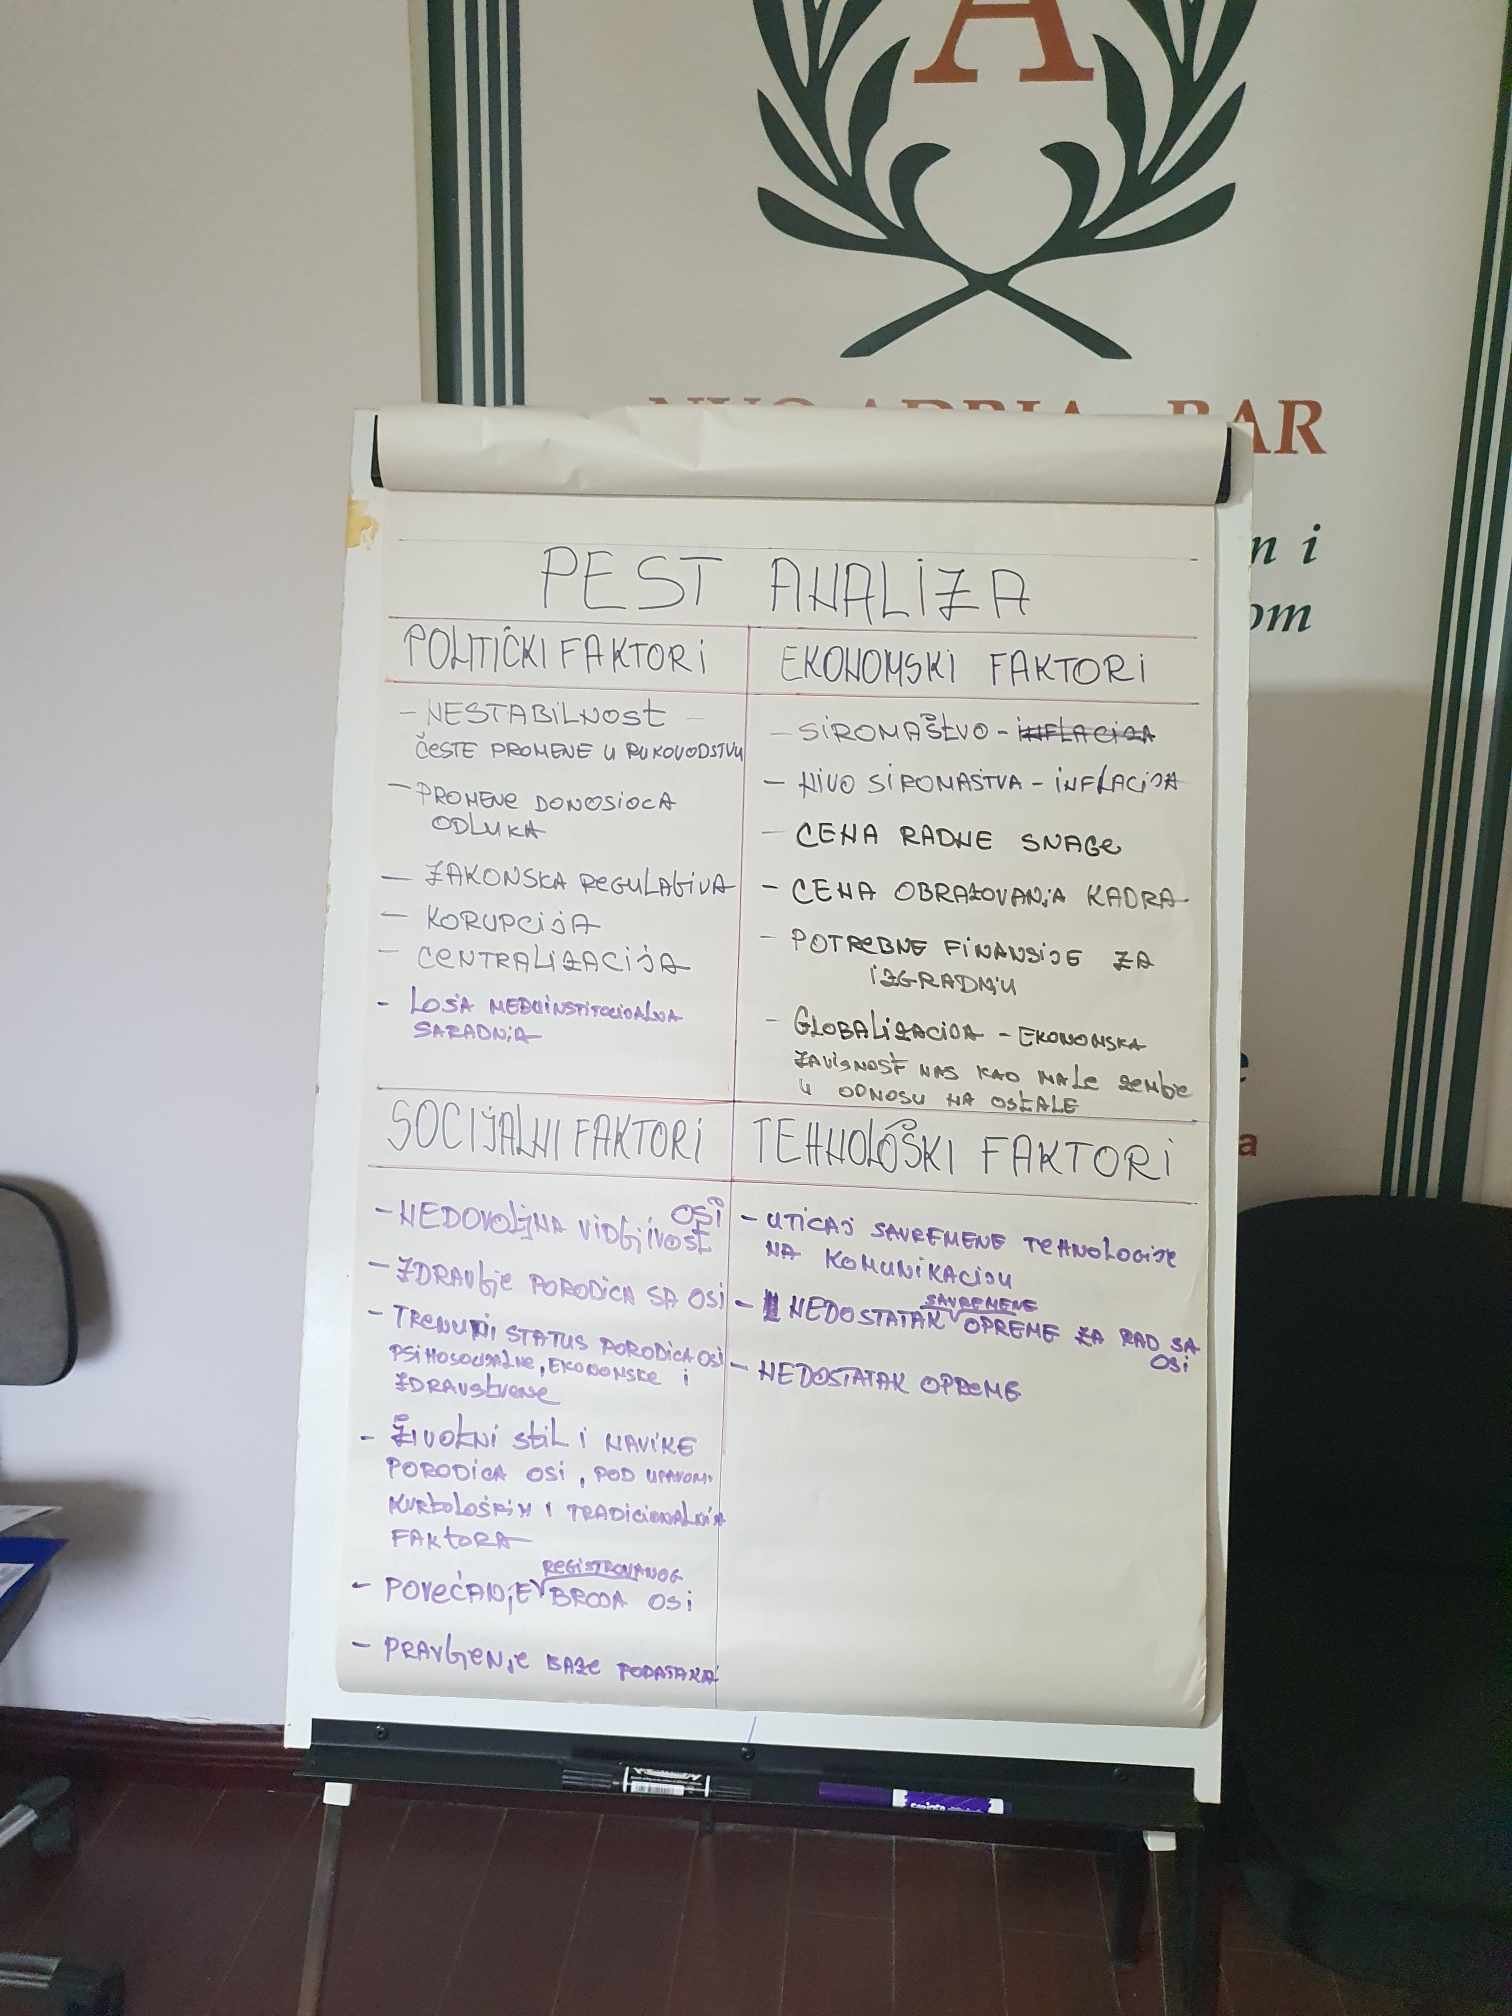 A
BAR
n i
om
e
a
PEST ANALIZA
POLITIČKI FAKTORI
- NESTABILNOST -
ČESTE PROMENE U RUKOVODSTVU
- PROMENE DONOSIOCA
ODLUKA
- ZAKONSKA REGULATIVA
- KORUPCIJA
- CENTRALIZACIJA
- LOŠA MEĐUINSTITUCIONALNA
SARADNJA
EKONOMSKI FAKTORI
- SIROMAŠTVO - INFLACIJA
- NIVO SIROMAŠTVA - INFLACIJA
- CENA RADNE SNAGE
- CENA OBRAZOVANJA KADRA
- POTREBNE FINANSIJE ZA
IZGRADNJU
- GLOBALIZACIJA - EKONOMSKA
ZAVISNOST NAS KAO MALE ZEMLJE
U ODNOSU NA OSTALE
SOCIJALNI FAKTORI
- NEDOVOLJNA VIDLJIVOST OSI
- ZDRAVLJE PORODICA SA OSI
- TRENUTNI STATUS PORODICA OSI
PSIHOSOCIJALNE, EKONOMSKE I
ZDRAVSTVENE
- ŽIVOTNI STIL I NAVIKE
PORODICA OSI, POD
I TRADICIONALNIH
FAKTORA
REGISTROVANOG
- POVEĆANJE BROJA OSI
- PRAVLJENJE BAZE PODATAKA
TEHNOLOŠKI FAKTORI
- UTICAJ SAVREMENE TEHNOLOGIJE
NA KOMUNIKACIJU
SAVREMENE
- NEDOSTATAK OPREME ZA RAD SA
OSI
- NEDOSTATAK OPREME